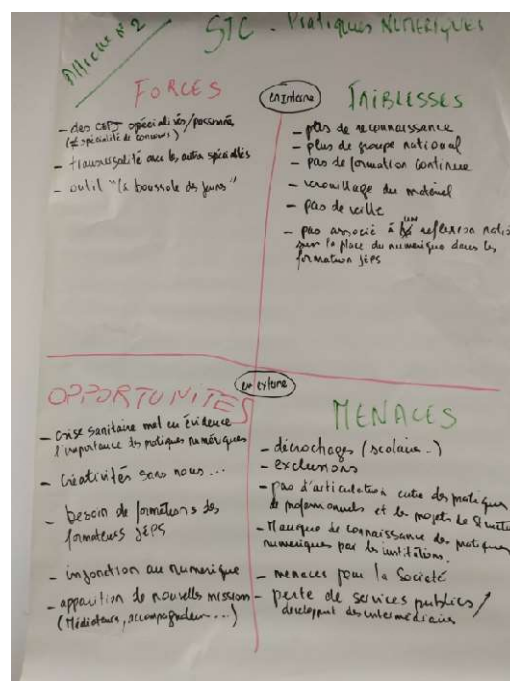 Affiche N°2
STC - Pratiques NUMERIQUES
FORCES
- des CEPJ spécialisés/passionnés
(≠ spécialité de concours)
- transversalité avec les autres spécialités
- outil "la boussole des jeunes"
en interne
FAIBLESSES
- pas de reconnaissance
- plus de groupe national
- pas de formation continue
- verouillage du matériel
- pas de veille
- pas associé à UN reflexion
sur la place du numérique dans les
formation JEPS
en externe
OPPORTUNITES
- crise sanitaire met en évidence
l'importance des pratiques numériques
- Créativités sans nous ...
- besoin de formations des
formateurs JEPS
- injonction au numerique
- apparition de nouvelles mission
(Médiateurs, accompagnateur ...)
MENACES
- décrochages (scolaire ..)
- exclusions
- pas d'articulation entre des pratiques
de professionnels et les projets de
- Manque de connaissance des pratiques
numériques par les institutions.
- menaces pour la Société
- perte de services publics /
developpent des intermédiaires